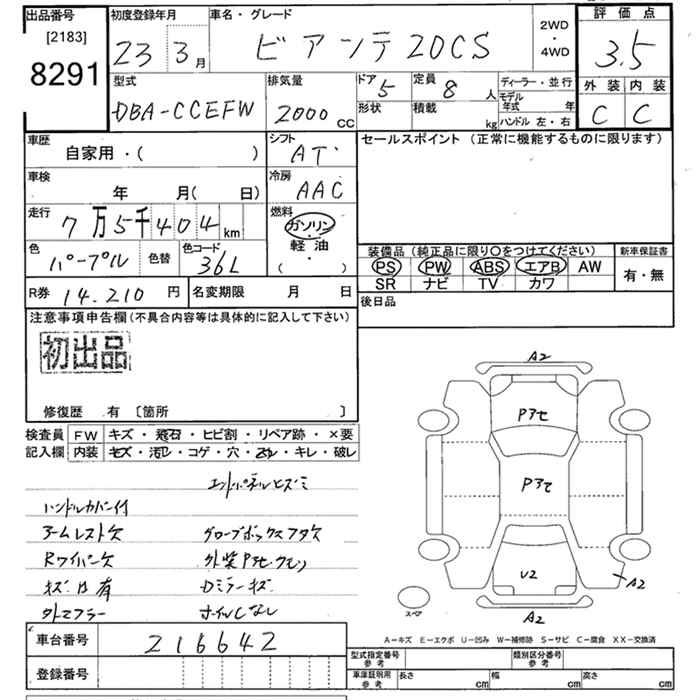 出品番号 初度登録年月 車名・グレード 2WD・4WD 評価点
[2183]
8291 23 3月 ビアンテ 20CS 3.5
型式 排気量 ドア 定員 ディーラー・並行 外装 内装
DBA-CCEFW 2000 CC 5 8人 モデル年式 年 C C
形状 積載 kg ハンドル 左・右
車歴 シフト セールスポイント（正常に機能するものに限ります）
自家用・( ) AT
車検 冷房
年 月( 日) AAC
走行 燃料
7万5千404km ガソリン・軽油・( )
色 色替 色コード 装備品（純正品に限り○をつけてください） 新車保証書
パープル 36L PS PW ABS エアB AW 有・無
SR ナビ TV カワ
R券 14.210円 名変期限 月 日 後日品
注意事項申告欄(不具合内容等は具体的に記入して下さい)
初出品
修復歴 有 〔箇所 〕
検査員 FW キズ・飛石・ヒビ割・リペア跡・×要
記入欄 内装 キズ・汚レ・コゲ・穴・スレ・キレ・破レ
エンドパネルヒズミ
ハンドルカバー付
アームレスト欠 グローブボックスフタ欠
Rワイパー欠 外装Pアセ・クモリ
キズ凹有 Dミラーキズ
外マフラー ホイルCなし
A2
Pアセ
Pアセ
U2
A2
A2
スペア
A－キズ E－エクボ U－凹み W－補修跡 S－サビ C－腐食 XX－交換済
車台番号 216642
登録番号
型式指定番号 参考 類別区分番号 参考
車庫証明用 参考 長さ cm 幅 cm 高さ cm